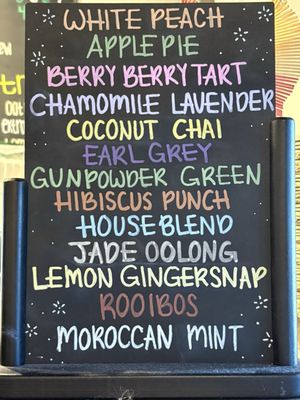 WHITE PEACH
APPLE PIE
BERRY BERRY TART
CHAMOMILE LAVENDER
COCONUT CHAI
EARL GREY
GUNPOWDER GREEN
HIBISCUS PUNCH
HOUSE BLEND
JADE OOLONG
LEMON GINGERSNAP
ROOIBOS
MOROCCAN MINT